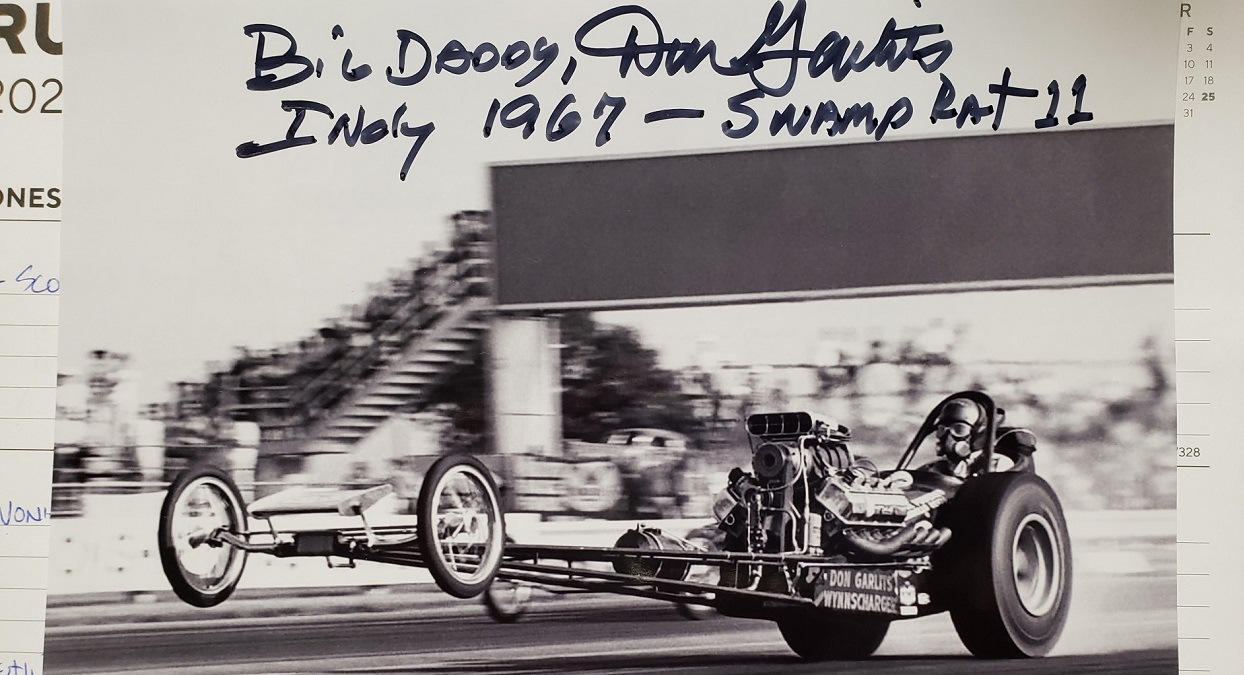 RU
202
ONES
- Sco
BiG DADDy, Don Garlits
INdy 1967 — SWAMP RAT 11
DON GARLITS
WYNNSCHARGER
R
F S
3 4
10 11
17 18
24 25
31
7328